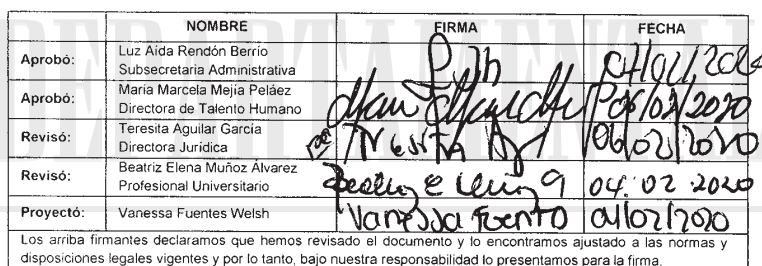 DEPARTAMENTAL
NOMBRE FIRMA FECHA
Aprobó: Luz Aída Rendón Berrío
Subsecretaria Administrativa
Aprobó: María Marcela Mejía Peláez
Directora de Talento Humano 06/02/2020
Revisó: Teresita Aguilar García
Directora Jurídica 06/02/2020
Revisó: Beatriz Elena Muñoz Álvarez
Profesional Universitario 04.02.2020
Proyectó: Vanessa Fuentes Welsh Vanessa Fuentes 04/02/2020
Los arriba firmantes declaramos que hemos revisado el documento y lo encontramos ajustado a las normas y
disposiciones legales vigentes y por lo tanto, bajo nuestra responsabilidad lo presentamos para la firma.